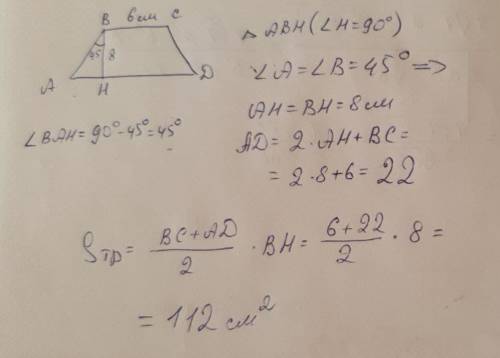 B 6см C
45 8
A H D
∠BAH = 90° - 45° = 45°
△ ABH (∠H = 90°)
∠A = ∠B = 45° =>
AH = BH = 8 см
AD = 2 · AH + BC =
= 2 · 8 + 6 = 22
Sтр = (BC + AD)/2 · BH = (6 + 22)/2 · 8 =
= 112 см²